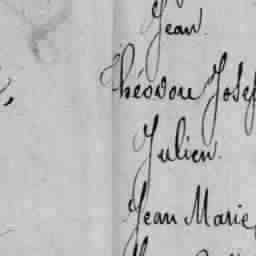 Jean.
Théodore Josep
Julien.
Jean Marie,